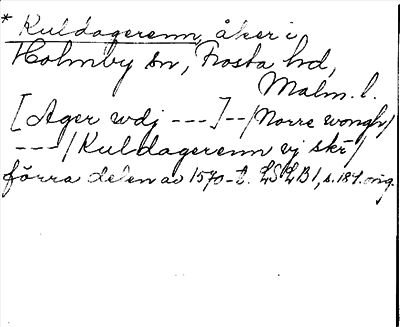 * Kuldagerenn, åker i
Holmby sn, Frosta hd,
Malm. l.
[Ager wdj ---]--/Norre wongh/
---/Kuldagerenn vj skr/
förra delen av 1570-t. LSLB1, s. 184. orig.